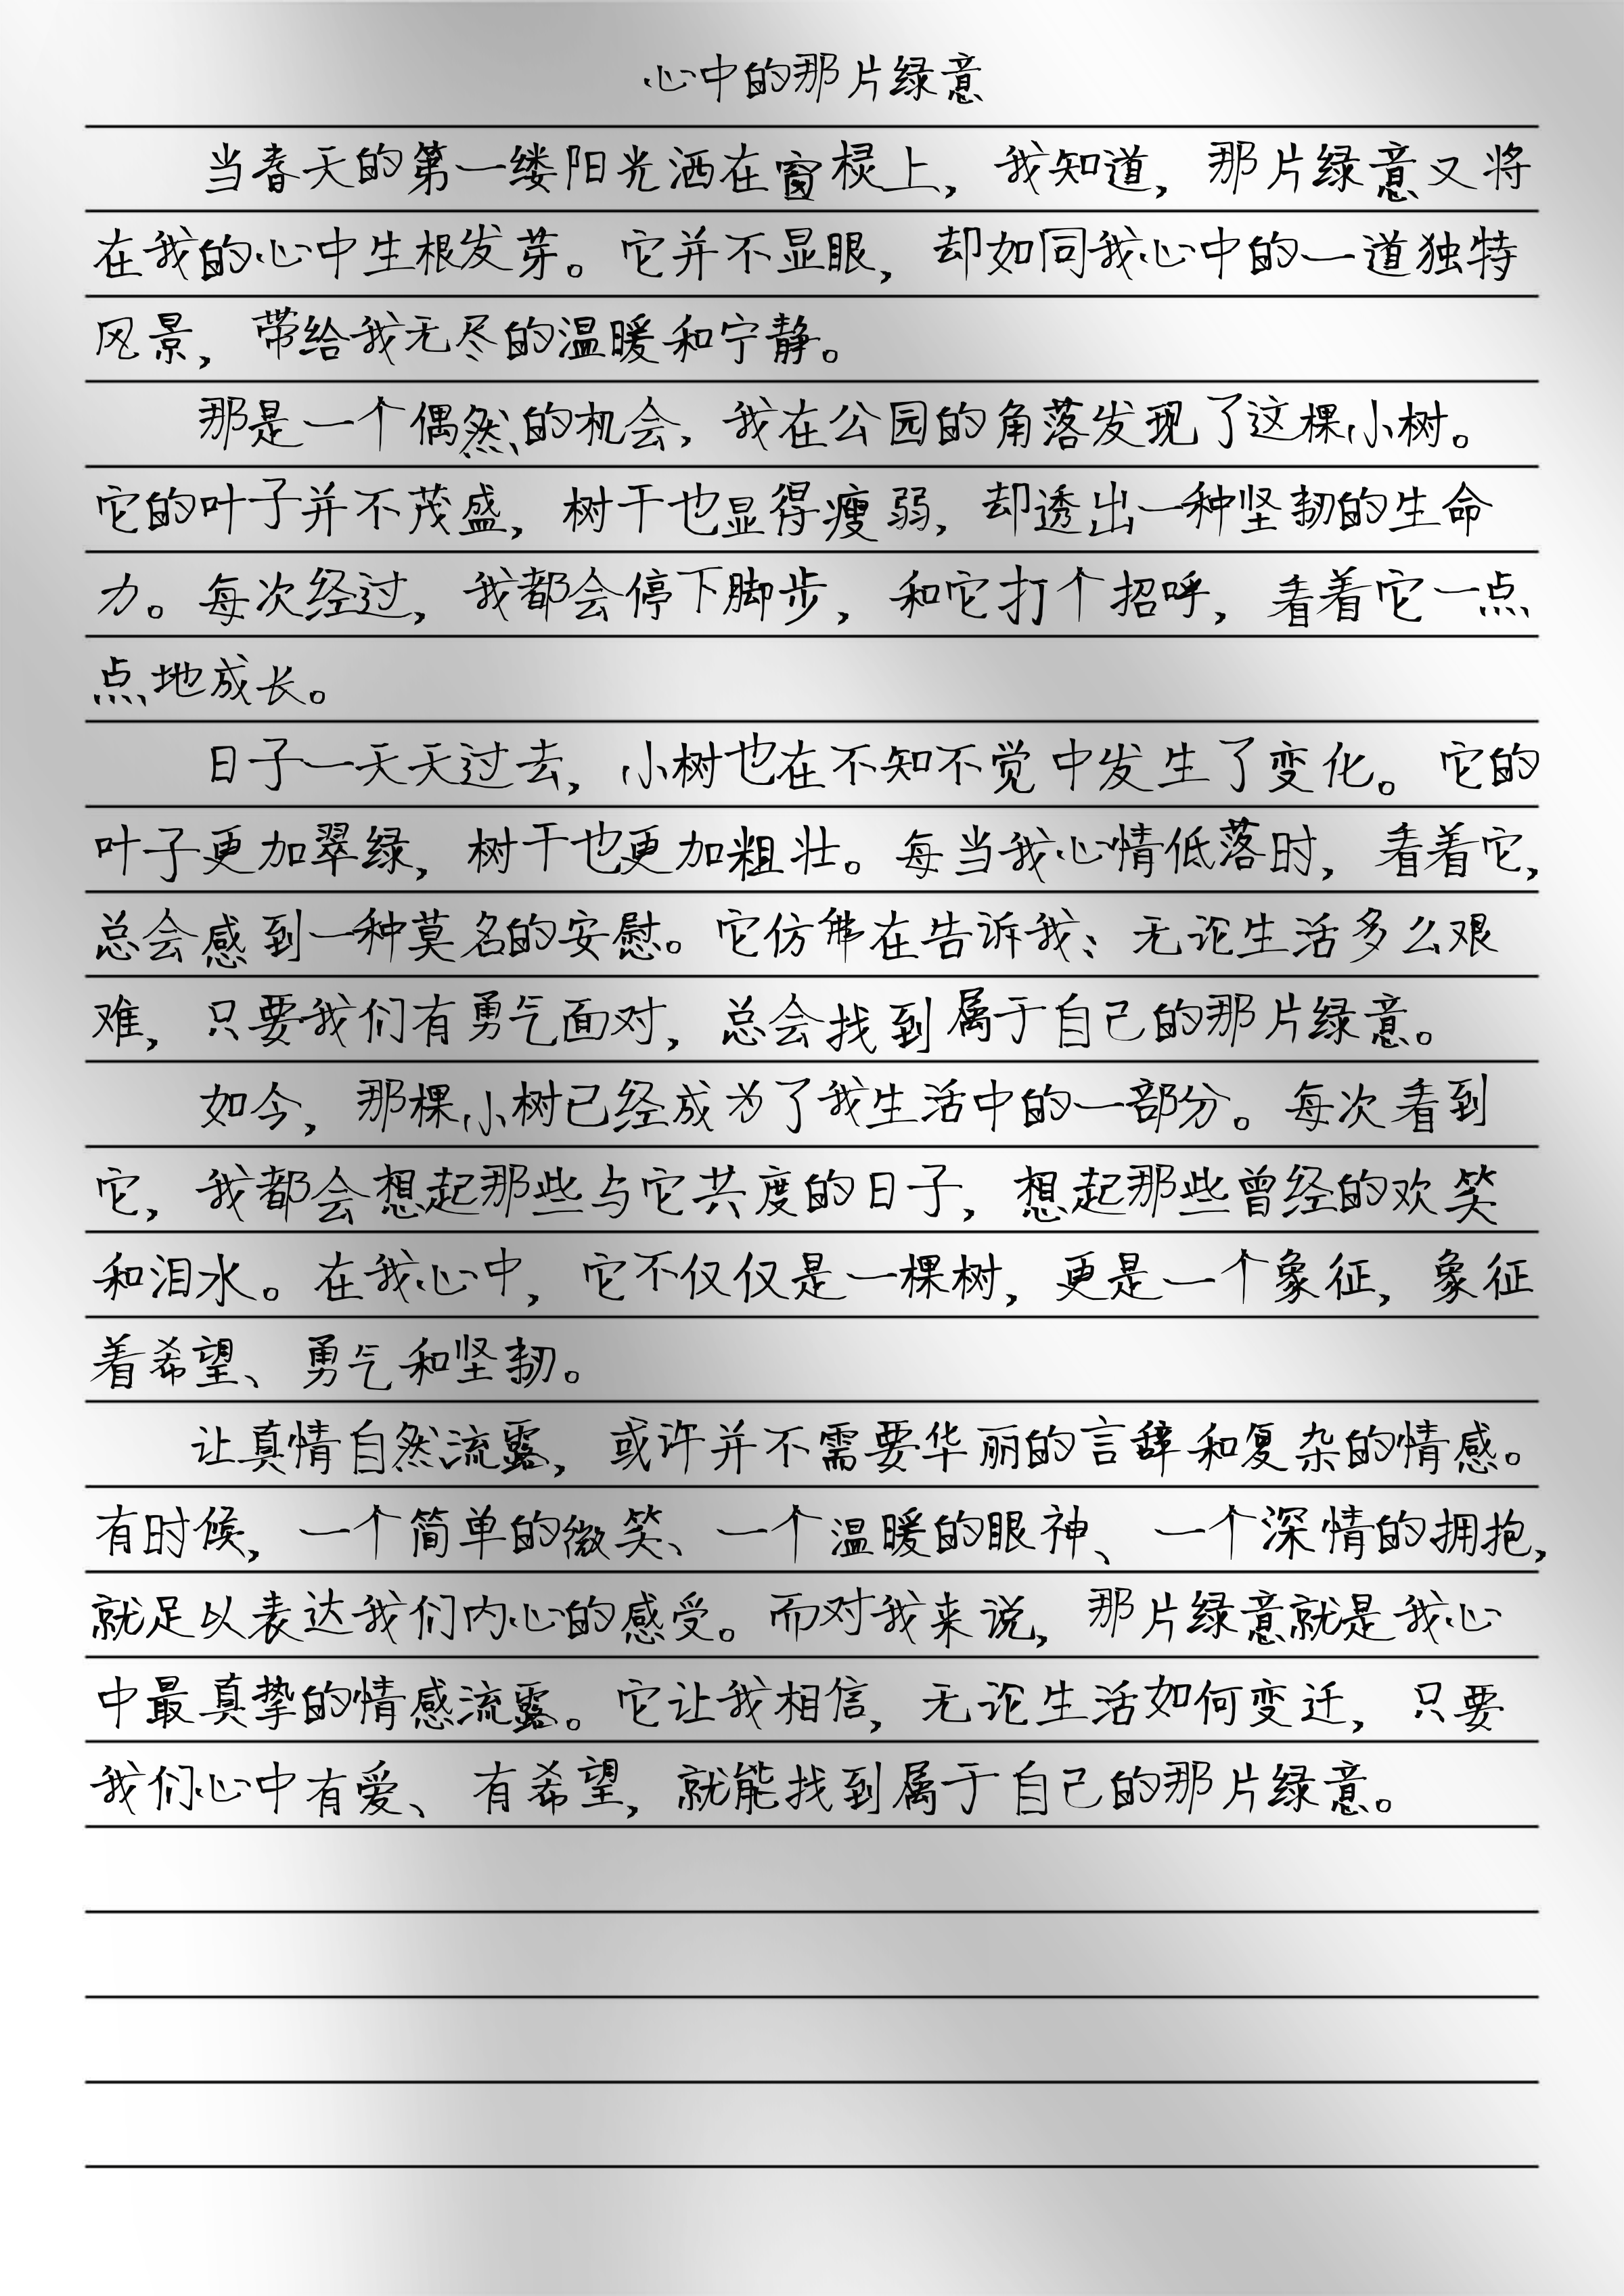 心中的那片绿意
当春天的第一缕阳光洒在窗棂上，我知道，那片绿意又将
在我的心中生根发芽。它并不显眼，却如同我心中的一道独特
风景，带给我无尽的温暖和宁静。
那是一个偶然的机会，我在公园的角落发现了这棵小树。
它的叶子并不茂盛，树干也显得瘦弱，却透出一种坚韧的生命
力。每次经过，我都会停下脚步，和它打个招呼，看着它一点
点地成长。
日子一天天过去，小树也在不知不觉中发生了变化。它的
叶子更加翠绿，树干也更加粗壮。每当我心情低落时，看着它，
总会感到一种莫名的安慰。它仿佛在告诉我：无论生活多么艰
难，只要我们有勇气面对，总会找到属于自己的那片绿意。
如今，那棵小树已经成为了我生活中的一部分。每次看到
它，我都会想起那些与它共度的日子，想起那些曾经的欢笑
和泪水。在我心中，它不仅仅是一棵树，更是一个象征，象征
着希望、勇气和坚韧。
让真情自然流露，或许并不需要华丽的言辞和复杂的情感。
有时候，一个简单的微笑、一个温暖的眼神、一个深情的拥抱，
就足以表达我们内心的感受。而对我来说，那片绿意就是我心
中最真挚的情感流露。它让我相信，无论生活如何变迁，只要
我们心中有爱、有希望，就能找到属于自己的那片绿意。